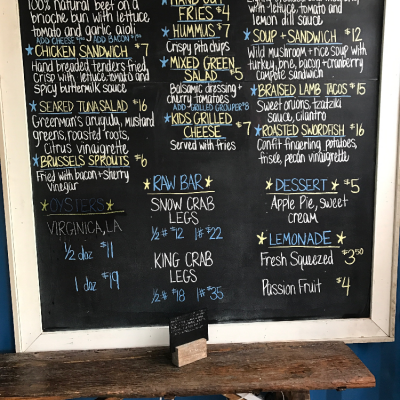 100% natural beef on a
brioche bun with lettuce,
tomato and garlic aioli
ADD CHEESE ADD BACON
CHICKEN SANDWICH $7
Hand breaded tenders fried
crisp with lettuce, tomato and
spicy buttermilk sauce
SEARED TUNA SALAD $16
Greenman's arugula, mustard
greens, roasted roots,
Citrus vinaigrette
BRUSSELS SPROUTS $6
Fried with bacon + sherry
vinegar
OYSTERS
VIRGINICA, LA
1/2 doz $11
1 doz $19
HAND CUT
FRIES $4
HUMMUS $7
Crispy pita chips
MIXED GREEN
SALAD $5
Balsamic dressing +
cherry tomatoes
ADD GRILLED GROUPER $8
KIDS GRILLED
CHEESE $7
Served with fries
RAW BAR
SNOW CRAB
LEGS
1/2# $12 1# $22
KING CRAB
LEGS
1/2# $18 1# $35
with lettuce, tomato and
lemon dill sauce
SOUP + SANDWICH $12
Wild mushroom + rice soup with
turkey, brie, bacon + cranberry
compote sandwich
BRAISED LAMB TACOS $15
Sweet onions, tzatziki
sauce, cilantro
ROASTED SWORDFISH $16
Confit fingerling potatoes,
frisée, pecan vinaigrette
DESSERT $5
Apple Pie, sweet
cream
LEMONADE
Fresh Squeezed $3.50
Passion Fruit $4